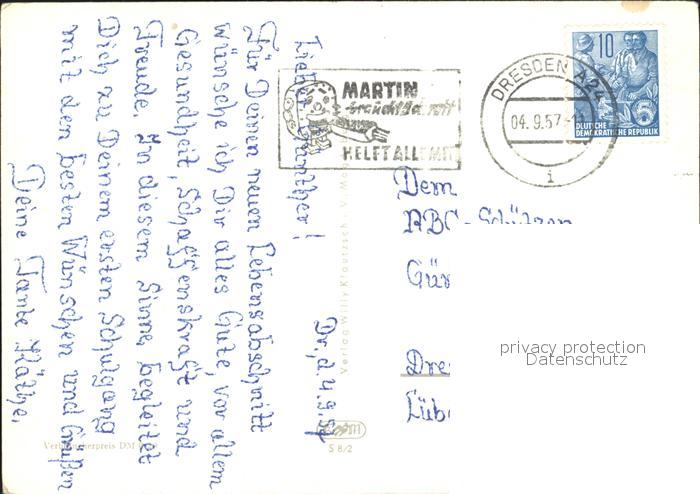 Dr., d. 4.9.57
Lieber Günther!
Für Deinen neuen Lebensabschnitt
wünsche ich Dir alles Gute, vor allem
Gesundheit, Schaffenskraft und
Freude. In diesem Sinne begleitet
Dich zu Deinem ersten Schulgang
mit den besten Wünschen und Grüßen
Deine Tante Käthe.
MARTIN
braucht Schrott
HELFT ALLE MIT
DRESDEN A24
04.9.57
i
10
DEUTSCHE
DEMOKRATISCHE REPUBLIK
Dem
ABC-Schützen
Gün
Dre
Lüb
Verlag Willy Klautzsch
Verbraucherpreis DM
S 8/2
privacy protection
Datenschutz